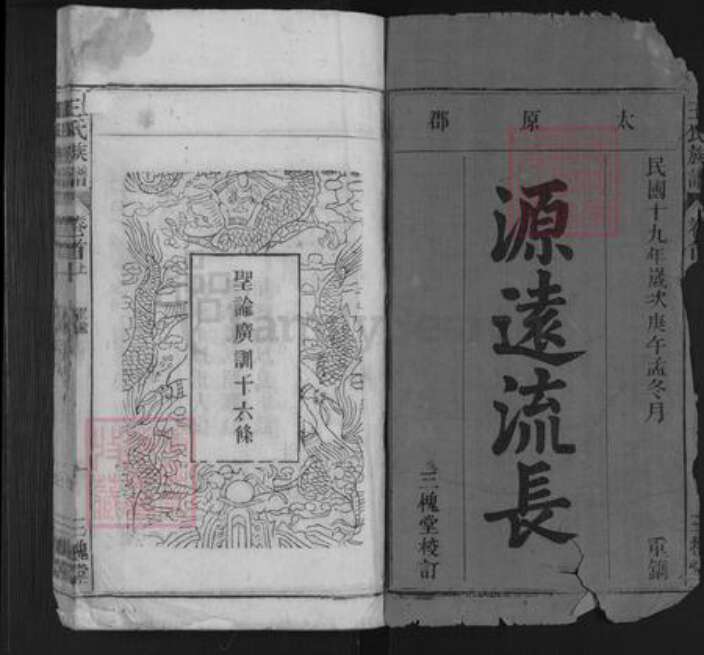 太原郡
民國十九年歲次庚午孟冬月
重鐫
源遠流長
三槐堂校訂
聖諭廣訓十六條
王氏族譜
卷首上
三槐堂